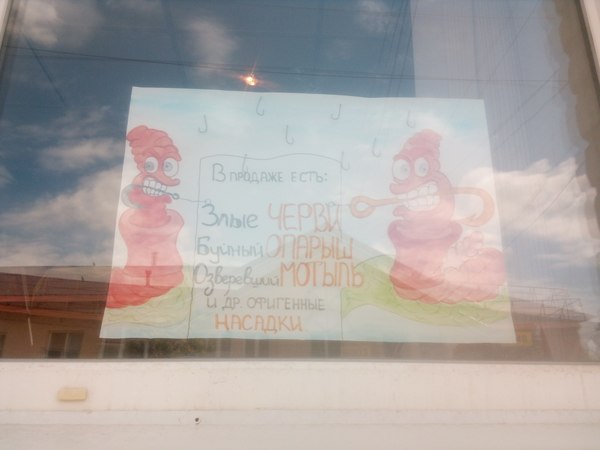 В ПРОДАЖЕ ЕСТЬ:
Злые ЧЕРВИ
Буйный ОПАРЫШ
Озверевший МОТЫЛЬ
И ДР. ОФИГЕННЫЕ
НАСАДКИ.